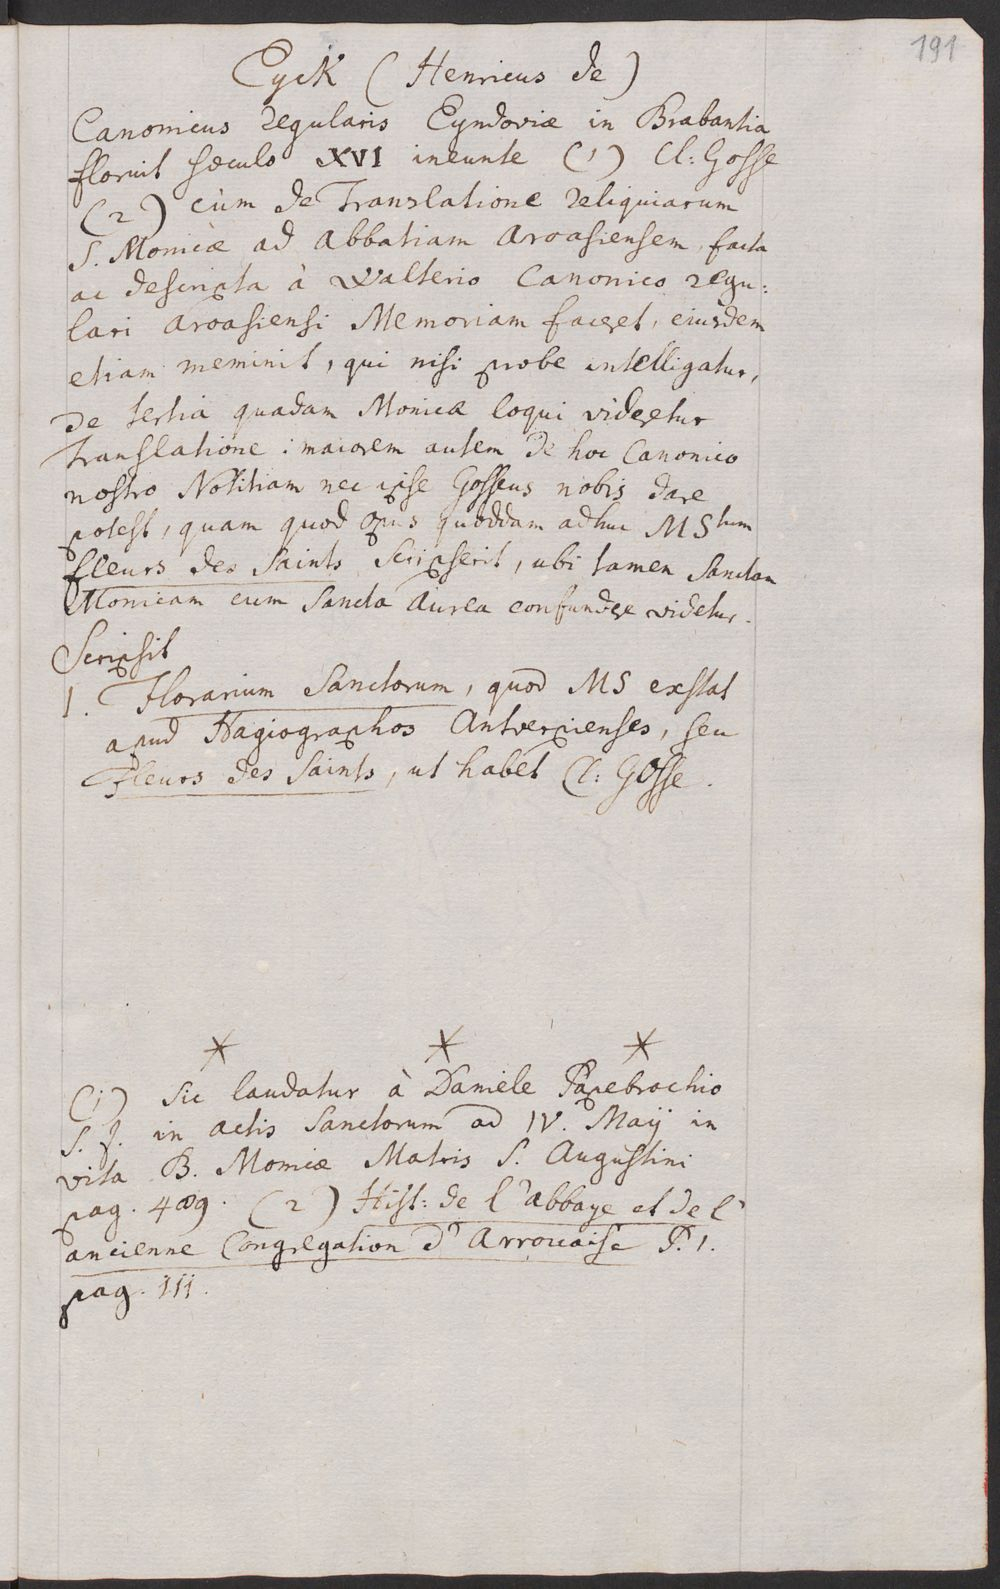 191
Eyck (Henricus de)
Canonicus regularis Eyndoviæ in Brabantia
floruit sæculo XVI ineunte (1) Cl: Gosse
(2) cùm de Translatione reliquiarum
S. Monicæ ad Abbatiam Aroasiensem facta
ac descripta à Walterio Canonico regu:
lari Aroasiensi Memoriam faceret, eiusdem
etiam meminit, qui nisi probe intelligatur,
de tertia quadam Monicæ loqui videretur
translatione: maiorem autem de hoc Canonico
nostro Notitiam nec ipse Gosseus nobis dare
potest, quam quod opus quoddam adhuc MStum
fleurs des Saints scripserit, ubi tamen Sanctam
Monicam cum Sancta Aurea confundere videtur.
Scripsit
1. Florarium Sanctorum, quod MS exstat
apud Hagiographos Antverpienses, seu
Fleurs des Saints, ut habet Cl: Gosse.
* * *
(1) Sic laudatur à Daniele Papebrochio
S. J. in actis Sanctorum ad IV. Maij in
vita B. Monicæ Matris S. Augustini
pag. 489. (2) Hist: de l'abbaye et de l'
ancienne Congregation d'Arrouaise P. 1.
pag. 111.